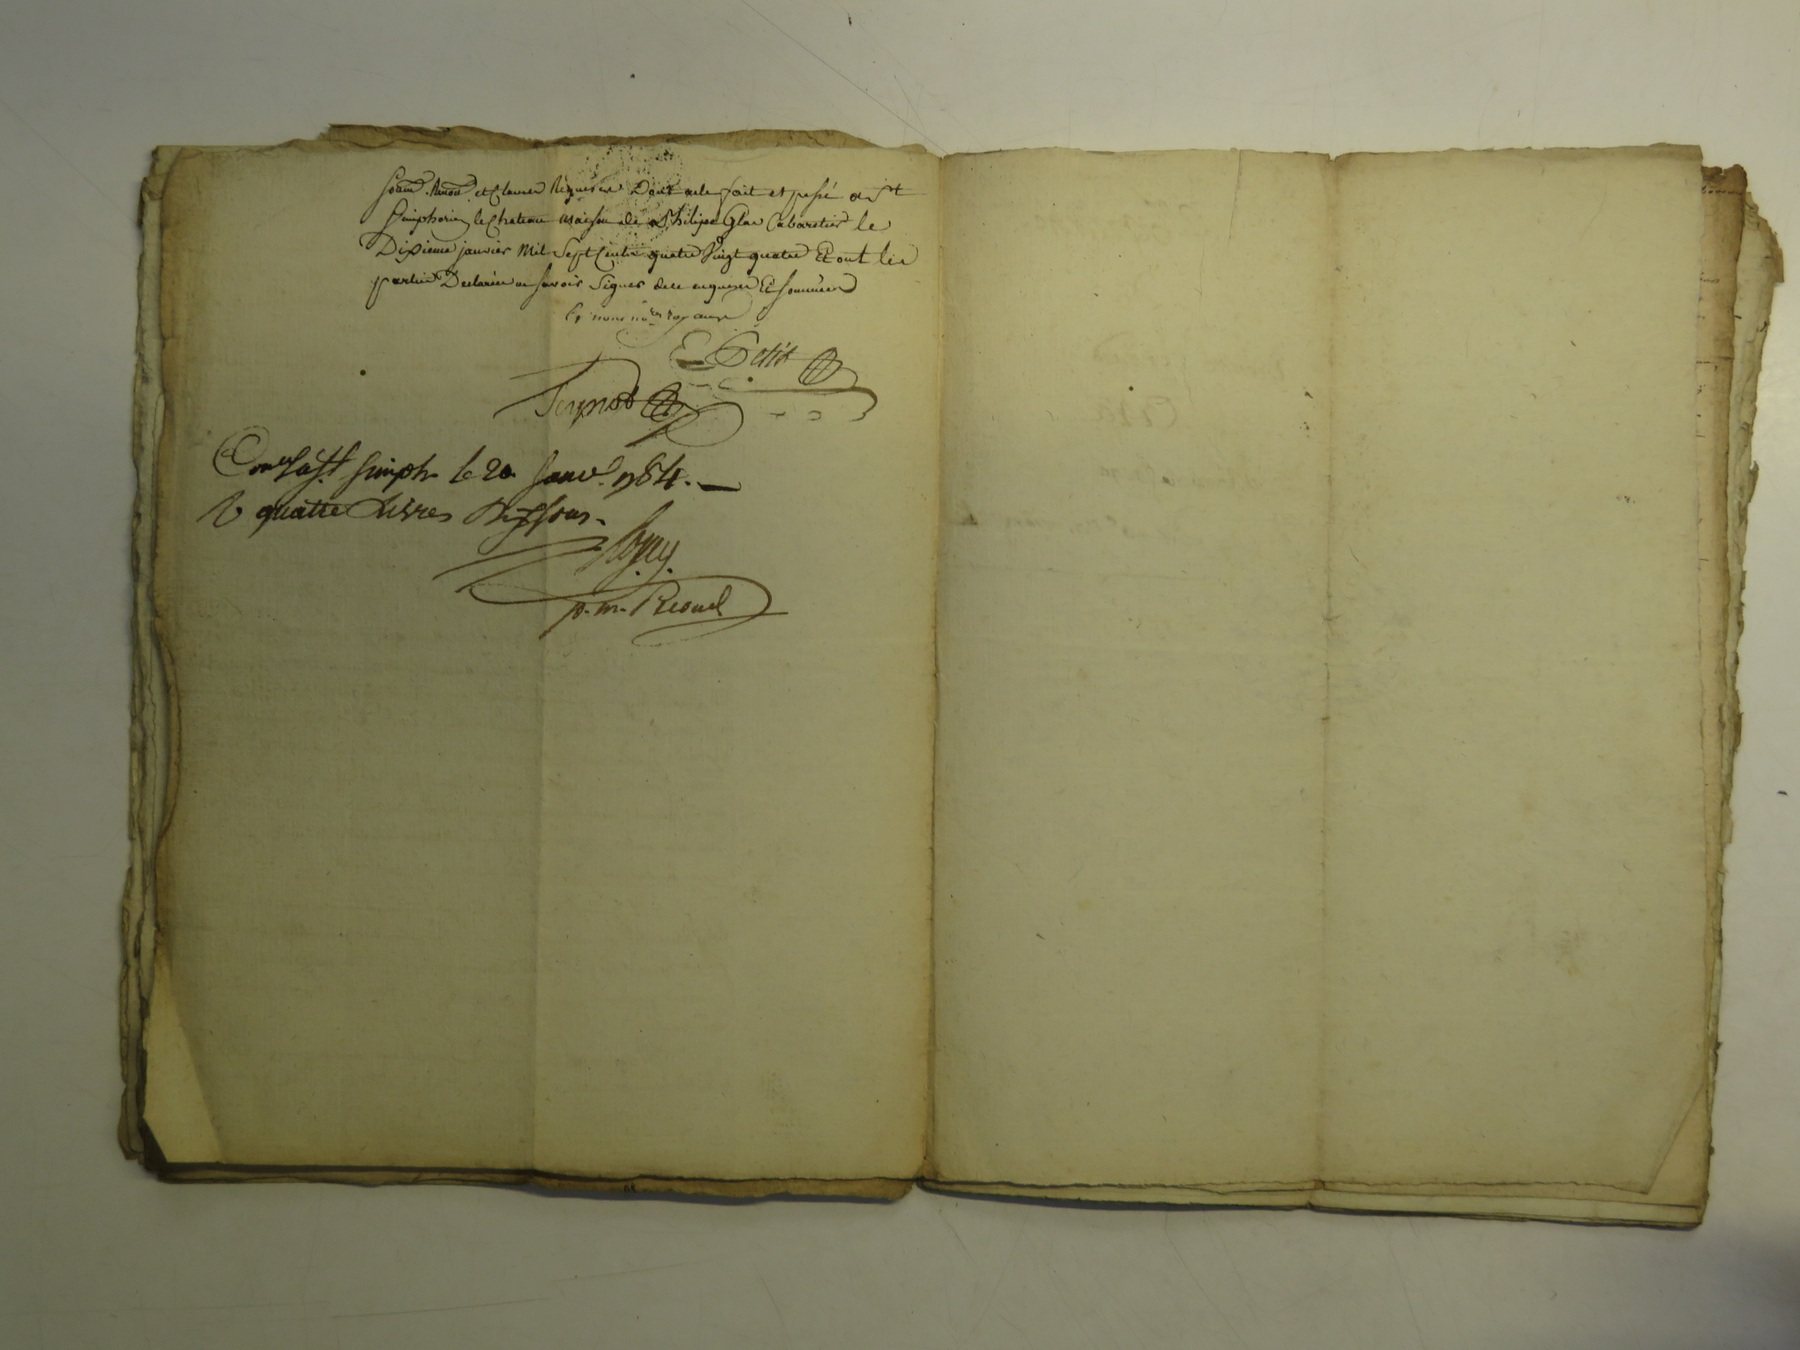 soumᵒⁿ Renonᵒⁿ et Clauses Requises Dont acte fait et passé a St
Simphorien le Chateau maison de Philipe Glas Cabaretier le
Dixieme janvier Mil Sept Cents quatre Vingt quatre Et ont les
parties Declarées ne savoir Signer de ce enquises Et sommées
les nous nores royaux
E Petit
Teynod
Conlé a St Simph. le 20 Janv. 1784.
R quatre Livres Dix sous
p. m.